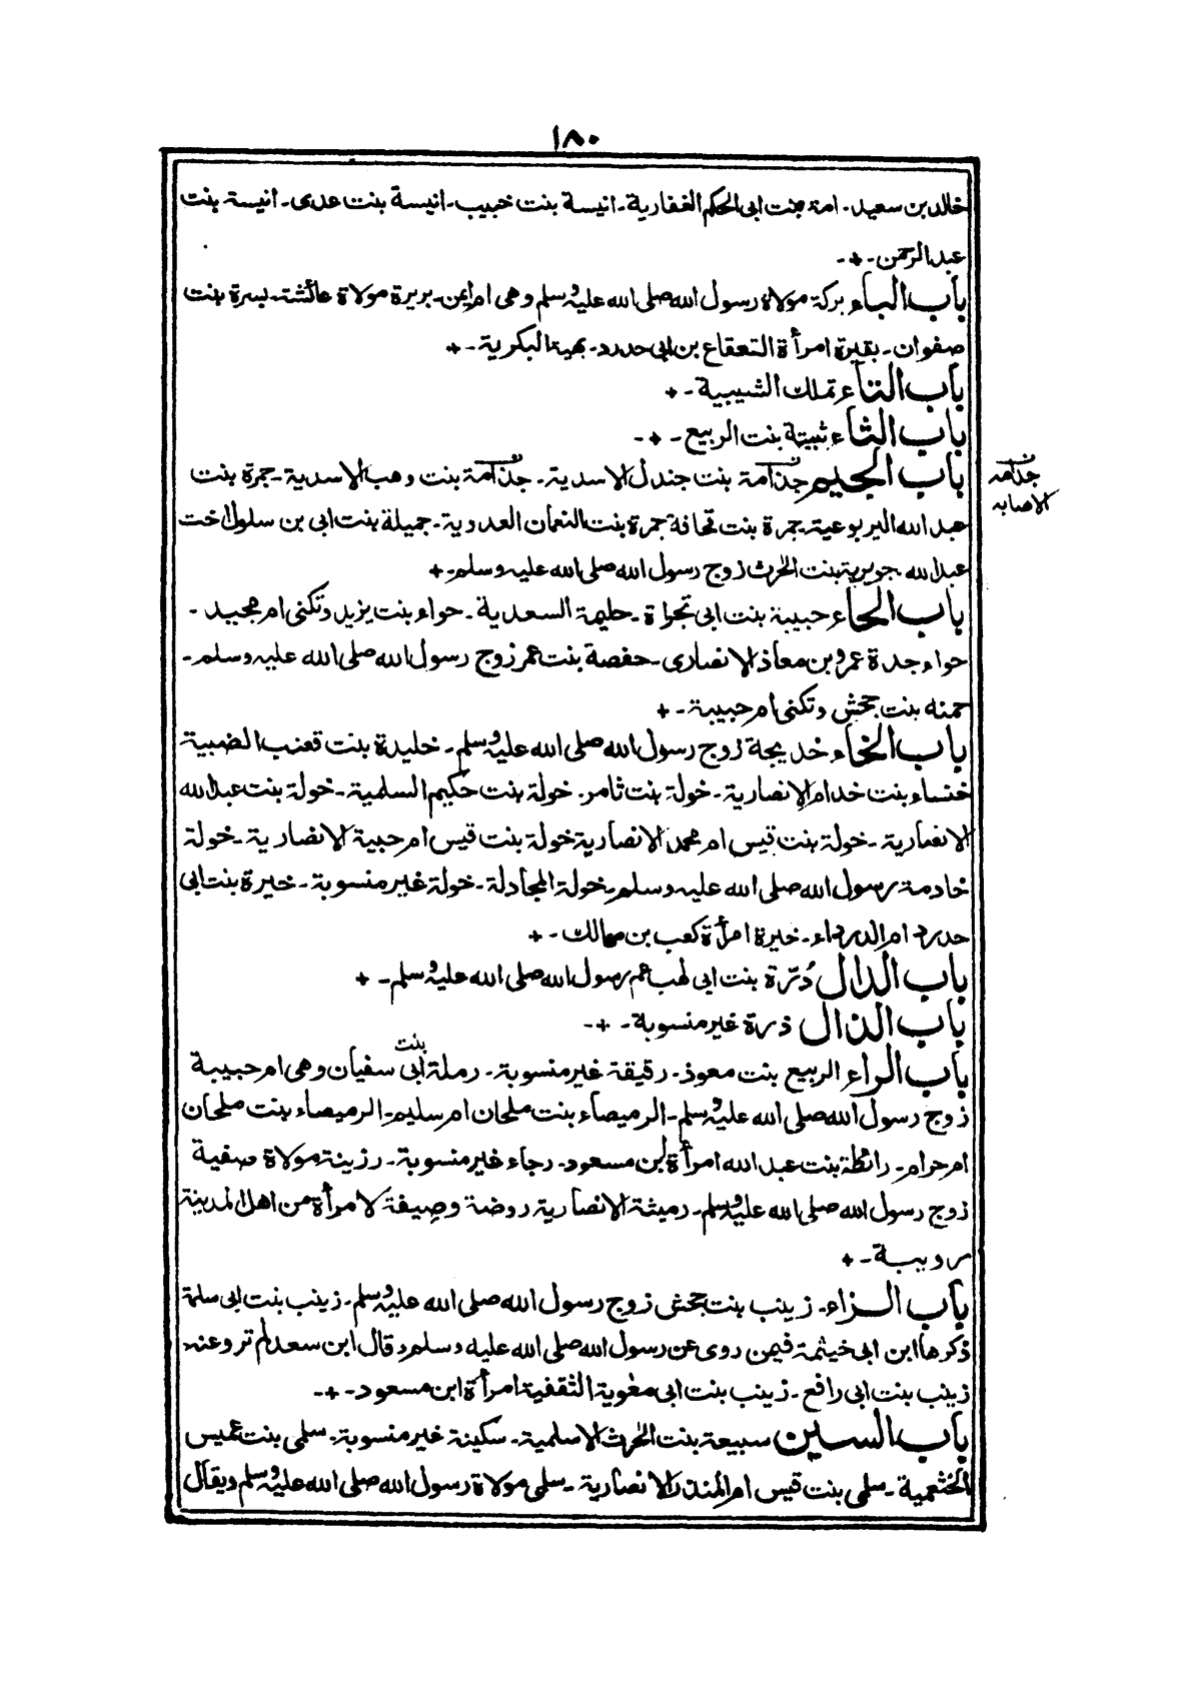 ١٨٠
خالد بن سعيد۔ امة بنت ابى الحكم الغفارية۔ انيسة بنت خبيب۔ انيسة بنت عدى۔ انيسة بنت
عبد الرحمن۔+۔
باب الباء بركة مولاة رسول الله صلى الله عليه وسلم وهى ام ايمن۔ بريرة مولاة عائشة۔ بسرة بنت
صفوان۔ بقيرة امرأة القعقاع بن ابى حدرد۔ بهية البكرية۔+
باب التاء تملك الشيبية۔+
باب الثاء ثبيتة بنت الربيع۔+۔
باب الجيم جذامة بنت جندل الاسدية۔ جذامة بنت وهب الاسدية۔ جمرة بنت
جذامه
الاصابه
عبد الله اليربوعية۔ جمرة بنت قحافة جمرة بنت النعمان العدوية۔ جميلة بنت ابى بن سلول اخت
عبد الله۔ جويرية بنت الحرث زوج رسول الله صلى الله عليه وسلم۔+
باب الحاء حبيبة بنت ابى تجراة۔ حليمة السعدية۔ حواء بنت يزيد وتكنى ام مجيد۔
حواء جدة عمرو بن معاذ الانصارى۔ حفصة بنت عمر زوج رسول الله صلى الله عليه وسلم۔
حمنه بنت جحش وتكنى ام حبيبة۔+
باب الخاء خديجة زوج رسول الله صلى الله عليه وسلم۔ خليدة بنت قعنب الضبية
خنساء بنت خدام الانصارية۔ خولة بنت ثامر۔ خولة بنت حكيم السلمية۔ خولة بنت عبد الله
الانصارية۔ خولة بنت قيس ام محمد الانصارية خولة بنت قيس ام حبيبة الانصارية۔ خولة
خادمة رسول الله صلى الله عليه وسلم۔ خولة المجادلة۔ خولة غير منسوبة۔ خيرة بنت ابى
حدرد ام الدرداء۔ خيرة امرأة كعب بن مالك۔+
باب الدال دُرّة بنت ابى لهب عم رسول الله صلى الله عليه وسلم۔+
باب الذال ذرة غير منسوبة۔+۔
باب الراء الربيع بنت معوذ۔ رقيقة غير منسوبة۔ رملة بنت ابى سفيان وهى ام حبيبة
زوج رسول الله صلى الله عليه وسلم۔ الرميصاء بنت ملحان ام سليم۔ الرميصاء بنت ملحان
ام حرام۔ رائطة بنت عبد الله امرأة ابن مسعود۔ رجاء غير منسوبة۔ رزينة مولاة صفية
زوج رسول الله صلى الله عليه وسلم۔ رميثة الانصارية روضة وصيفة لامرأة من اهل المدينة
روبية۔+
باب الزاء۔ زينب بنت جحش زوج رسول الله صلى الله عليه وسلم۔ زينب بنت ابى سلمة
ذكرها ابن ابى خيثمة فيمن روى عن رسول الله صلى الله عليه وسلم وقال ابن سعد لم تروعنه
زينب بنت ابى رافع۔ زينب بنت ابى معوية الثقفية امرأة ابن مسعود۔+۔
باب السين سبيعة بنت الحرث الاسلمية۔ سكينة غير منسوبة۔ سلمى بنت عميس
الخثعمية۔ سلمى بنت قيس ام المنذر الانصارية۔ سلمى مولاة رسول الله صلى الله عليه وسلم ويقال